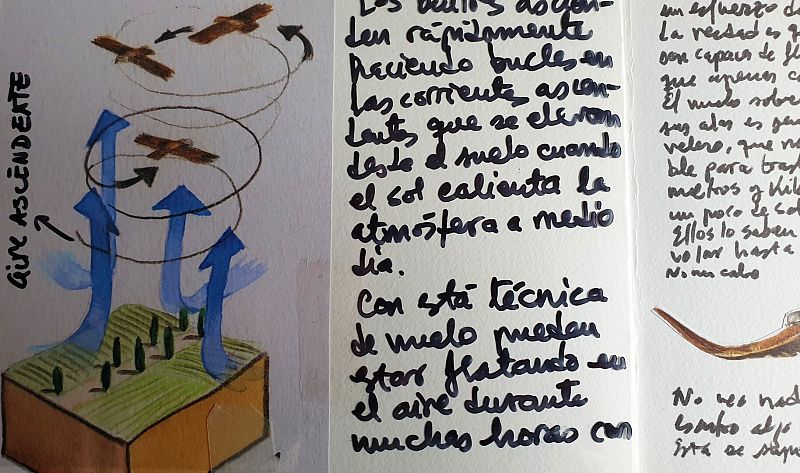 AIRE ASCENDENTE
Los buitres ascien-
den rápidamente
haciendo bucles en
las corrientes ascen-
dentes que se elevan
desde el suelo cuando
el sol calienta la
atmósfera a medio
dia.
Con está técnica
de vuelo pueden
estar flotando en
el aire durante
muchas horas con
un esfuerzo d
La verdad es q
son capaces de
que apenas c
El vuelo sobre
sus alas es
velero, que
ble para
metros y kil
un poco de sol
Ellos lo saben
volar hasta
No nu cabo
No veo nad
algo
Esta se